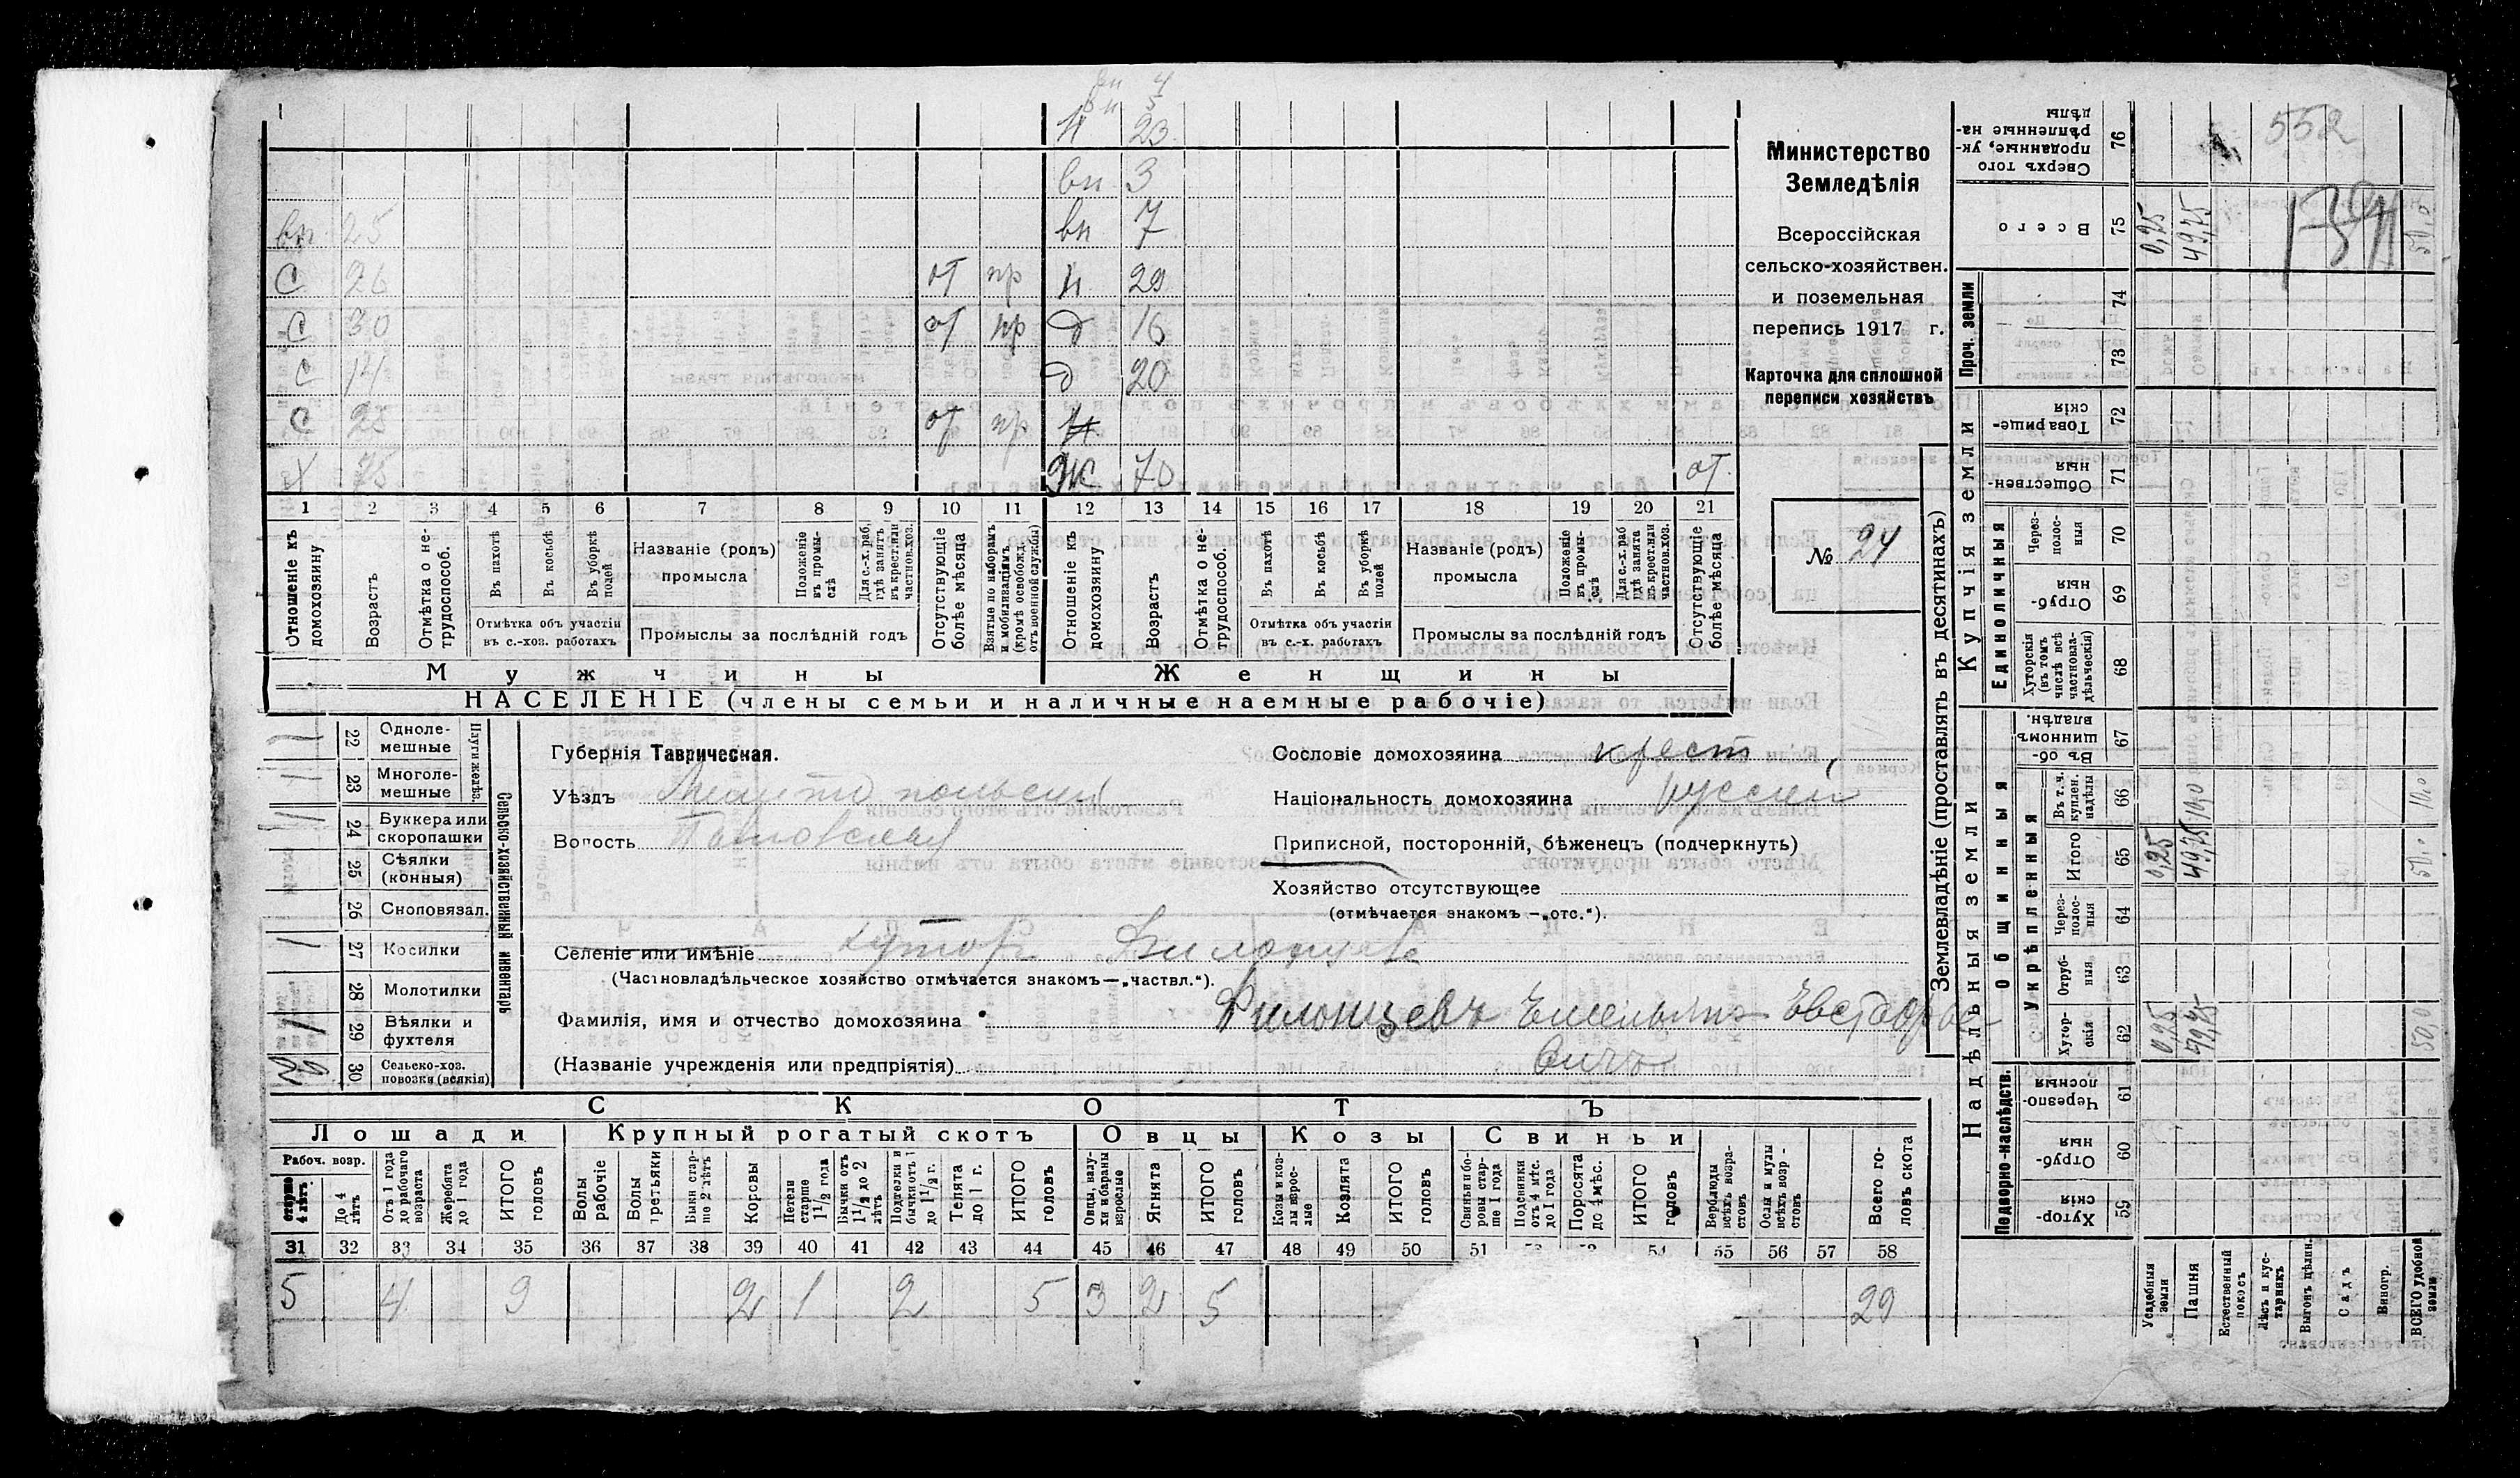 вн 4
вн 5
н 23
вн 3
вн 25 вн 7
С 26 от пр н 29
С 30 от пр д 16
С 14 д 20
С 25 от пр
Х 75 Ж 70 от
1 2 3 4 5 6 7 8 9 10 11 12 13 14 15 16 17 18 19 20 21
Отношеніе къ домохозяину
Возрастъ
Отмѣтка о нетрудоспособ.
Въ пахотѣ
Въ косьбѣ
Въ уборкѣ полей
Отмѣтка объ участіи въ с.-хоз. работахъ
Названіе (родъ) промысла
Положеніе въ промыслѣ
Для с.-х. раб. гдѣ занятъ въ крест. или частнов. хоз.
Промыслы за послѣдній годъ
Отсутствующіе болѣе мѣсяца
Взятые по наборамъ и мобилизаціямъ (кромѣ освобожд. отъ военной службы)
Отношеніе къ домохозяину
Возрастъ
Отмѣтка о нетрудоспособ.
Въ пахотѣ
Въ косьбѣ
Въ уборкѣ полей
Отмѣтка объ участіи въ с.-х. работахъ
Названіе (родъ) промысла
Положеніе въ промыслѣ
Для с.-х. раб. гдѣ занята въ крест. или частнов. хоз.
Промыслы за послѣдній годъ
Отсутствующіе болѣе мѣсяца
Мужчины Женщины
НАСЕЛЕНІЕ (члены семьи и наличные наемные рабочіе)
Министерство
Земледѣлія
Всероссійская
сельско-хозяйствен.
и поземельная
перепись 1917 г.
Карточка для сплошной
переписи хозяйствъ
№ 24
22 Однолемешные 1
23 Многолемешные 1
Плуги желѣз.
24 Буккера или скоропашки 1
25 Сѣялки (конныя)
26 Сноповязал.
27 Косилки 1
28 Молотилки
29 Вѣялки и фухтеля 1
30 Сельско-хоз. повозки (всякія)
Сельско-хозяйственный инвентарь
Губернія Таврическая.
Уѣздъ Мелитопольскій
Волость
Сословіе домохозяина крест
Національность домохозяина русскій
Приписной, посторонній, бѣженецъ (подчеркнуть)
Хозяйство отсутствующее
(отмѣчается знакомъ —„отс.“).
Селеніе или имѣніе хуторъ Филонцева
(Частновладѣльческое хозяйство отмѣчается знакомъ—„частвл.“).
Фамилія, имя и отчество домохозяина Филонцевъ Емельянъ
(Названіе учрежденія или предпріятія)
СКОТЪ
Лошади Крупный рогатый скотъ Овцы Козы Свиньи
Рабоч. возр.
старше 4 лѣтъ
До 4 лѣтъ
Отъ 1 года до рабочаго возраста
Жеребята до 1 года
ИТОГО головъ
Волы рабочіе
Волы третьяки
Быки старше 2 лѣтъ
Коровы
Нетели старше 1½ года
Бычки отъ 1½ до 2 лѣтъ
Подтелки и бычки отъ 1 до 1½ г.
Телята до 1 г.
ИТОГО головъ
Овцы, валухи и бараны взрослые
Ягнята
ИТОГО головъ
Козы и козлы взрослые
Козлята
ИТОГО головъ
Свиньи и боровы старше 1 года
Подсвинки отъ 4 мѣс. до 1 года
Поросята до 4 мѣс.
ИТОГО головъ
Верблюды всѣхъ возрастовъ
Ослы и мулы всѣхъ возр-стовъ
Всего головъ скота
31 32 33 34 35 36 37 38 39 40 41 42 43 44 45 46 47 48 49 50 51 55 56 57 58
5 4 9 2 1 2 5 3 2 5 29
Землевладѣніе (проставлять въ десятинахъ)
Надѣльныя земли Купчія земли Проч. земли
Подворно-наслѣдств.
Общинныя
Укрѣпленныя
Единоличныя
59 Хуторскія
60 Отрубныя
61 Черезполосныя
62 Хуторскія 0,25 49,75 50,0
63 Отрубныя
64 Черезполосныя
65 Итого 0,25 49,75 50,0
66 Въ т. ч. куплен. надѣлы 10,0 10,0
67 Въ общинномъ владѣн.
68 Хуторскія (въ томъ числѣ всѣ частновладѣльческія)
69 Отрубныя
70 Черезполосныя
71 Общественныя
72 Товарищескія
73
74
75 Всего 0,25 49,75 50,0
76 Сверхъ того проданные, укрѣпленные надѣлы
552
Усадебныя земли
Пашня
Естественный покосъ
Лѣсъ и кустарникъ
Выгонъ цѣлин.
Садъ
Виногр.
ВСЕГО удобной земли